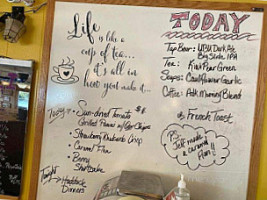 Life
is like a
cup of tea...
it's all in
how you make it...
TODAY
Tap Beer:
Big Slide, IPA
Tea: Kiwi Pear
Green
Soups: Cauliflower Garlic
Coffee: ADK Morning Blend
French Toast
P.S.
Just made
a caramel
Flan!!
Today → Sun-dried Tomato $8
Grilled Panini w/ Chips
Strawberry Rhubarb Crisp
Caramel Flan
Berry
Shortcake
Tonight → Haddock
Dinners